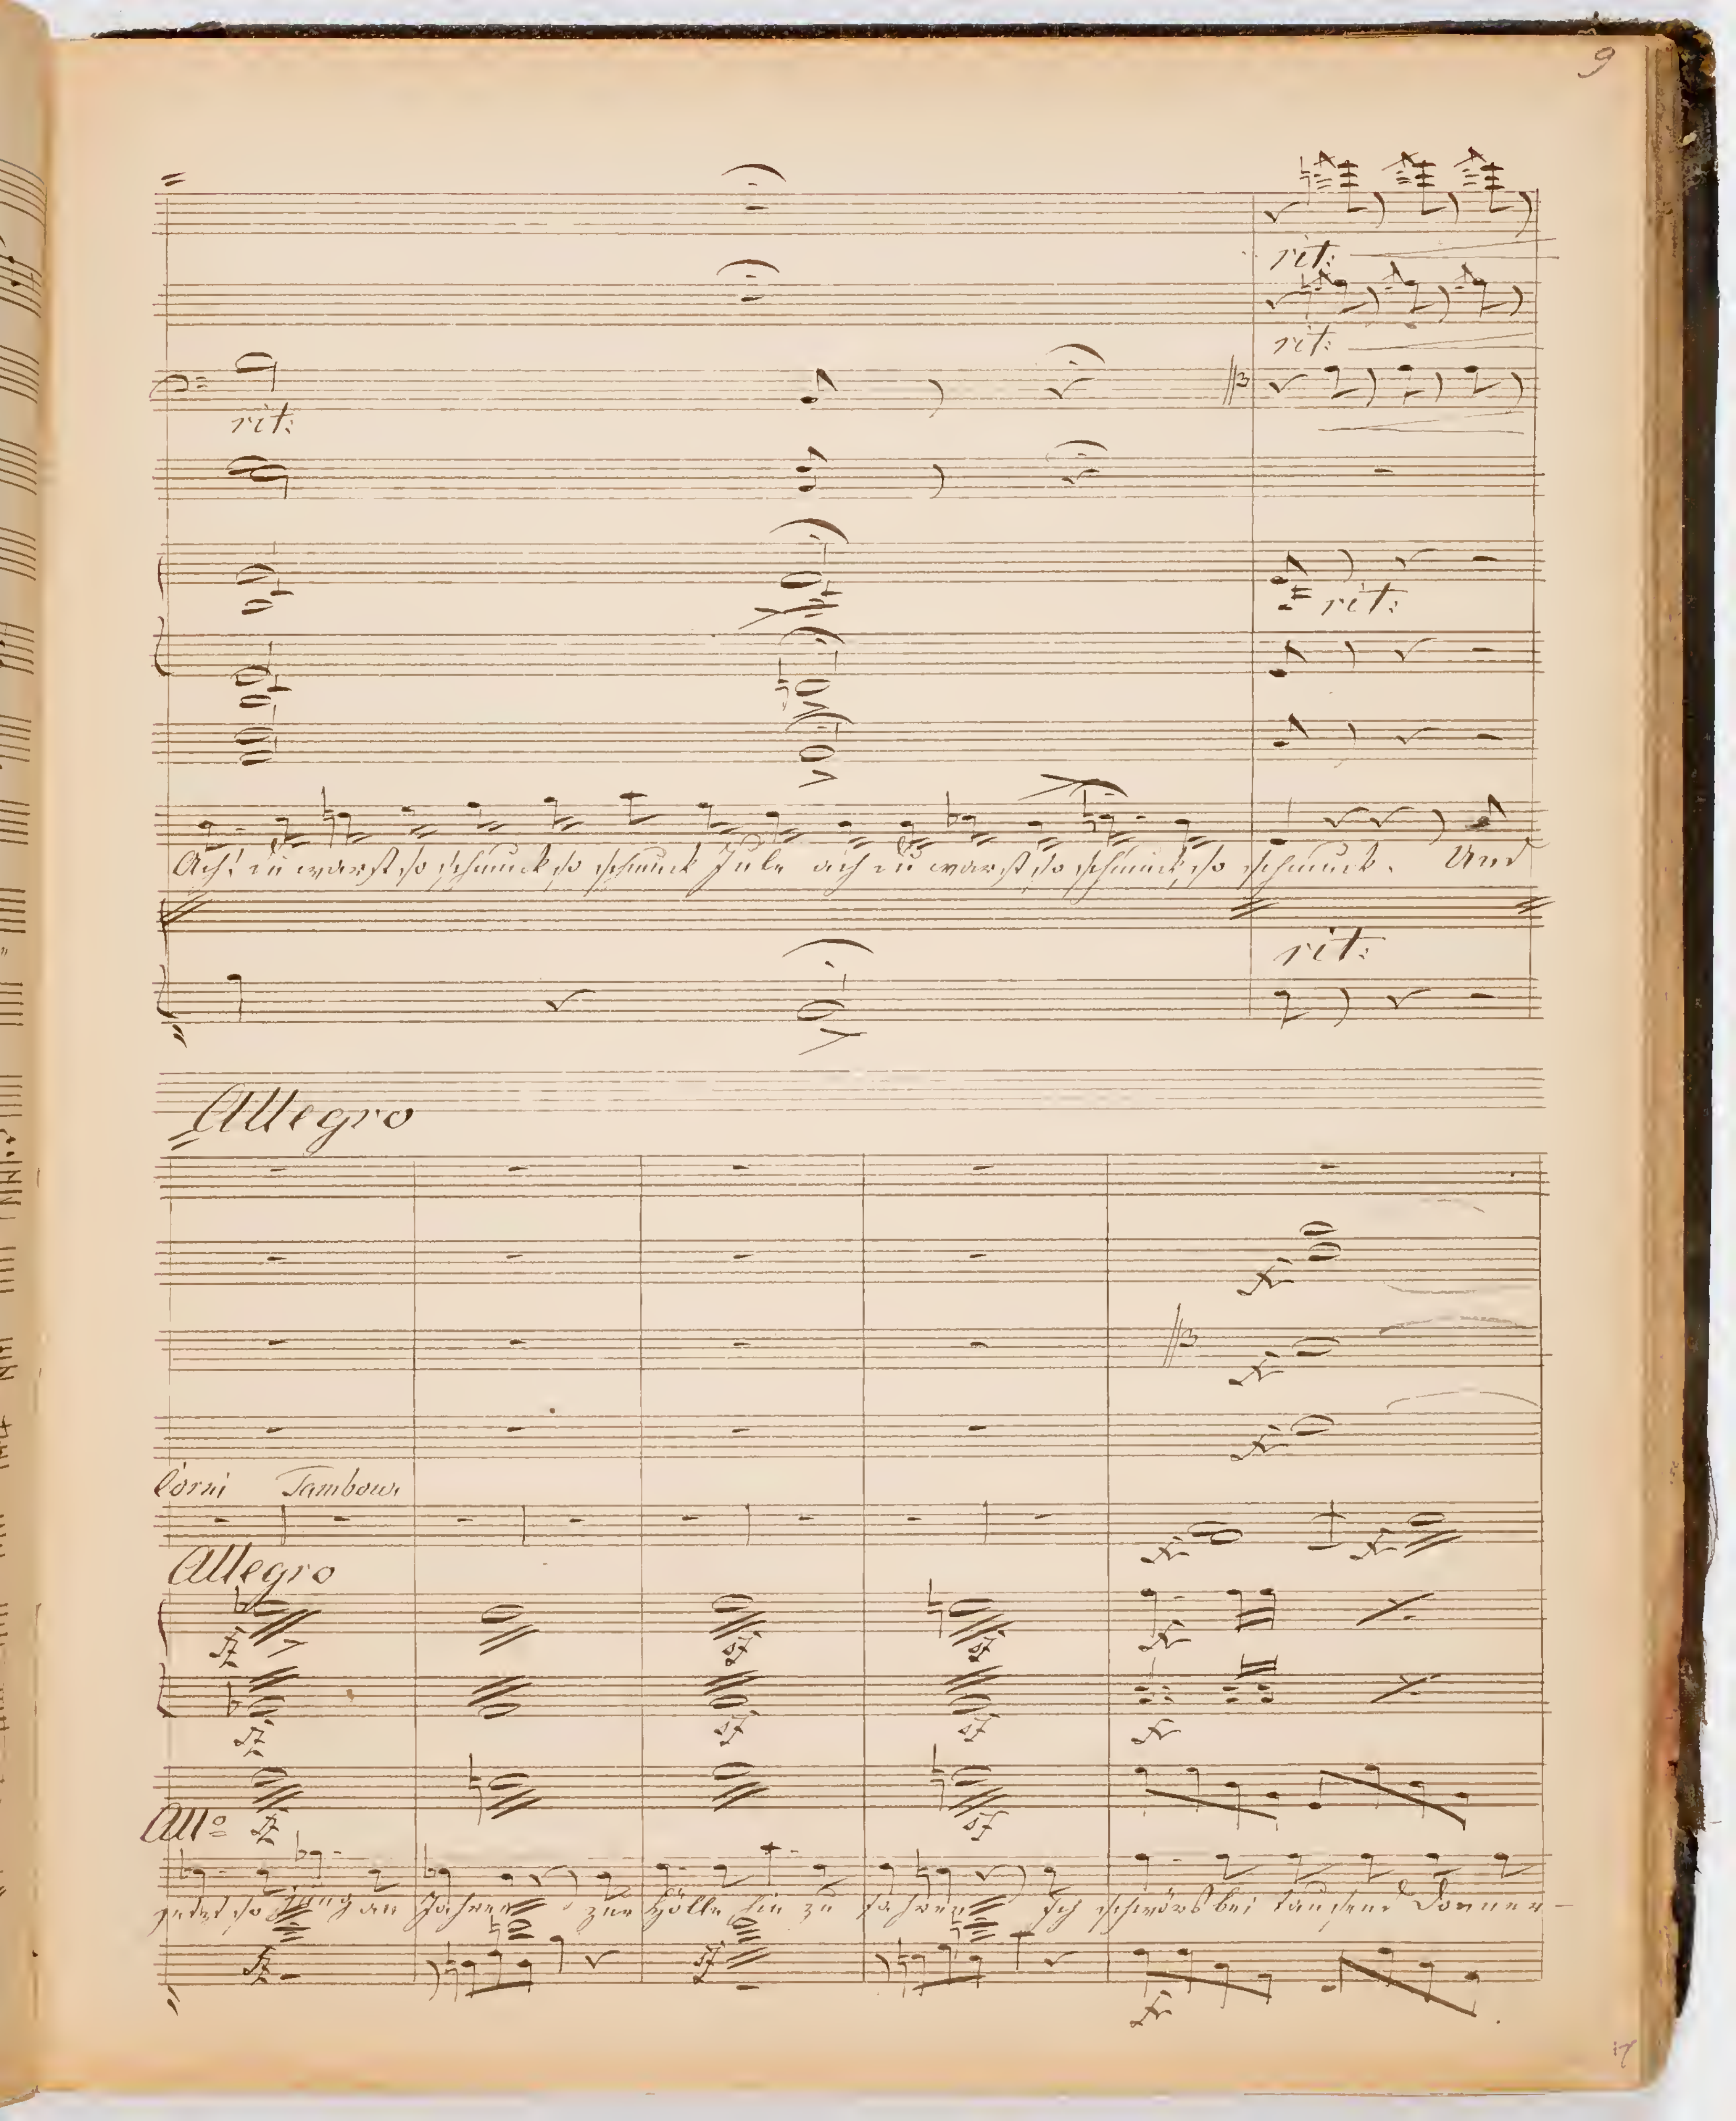 9
rit:
rit:
rit:
rit:
Ach! du warst so schmuck so schmuck Jule ach du warst so schmuck, so schmuck. Und
rit:
Allegro
Corni Tambour
Allegro
fz
sf
sf
fz
sf
sf
All<sup>o</sup> fz
sf
jetzt so jung an Jahren zur Hölle hin zu fahren Ich schwörs bei tausend Donner-
fz
sf
17